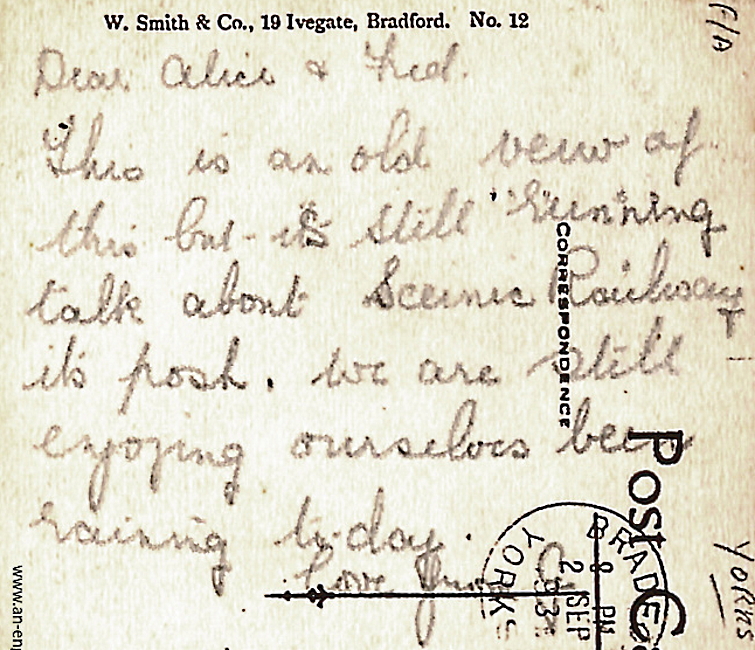 W. Smith & Co., 19 Ivegate, Bradford. No. 12
Dear Alice & Fred.
This is an old veiw of
this but it's still running
talk about Sceinic Railway
it's posh. we are still
enjoying ourselves been
raining to-day.
Love
CORRESPONDENCE
POST
BRADFORD
YORKS
8 PM
2 SEP
Yorks
www.an-eng